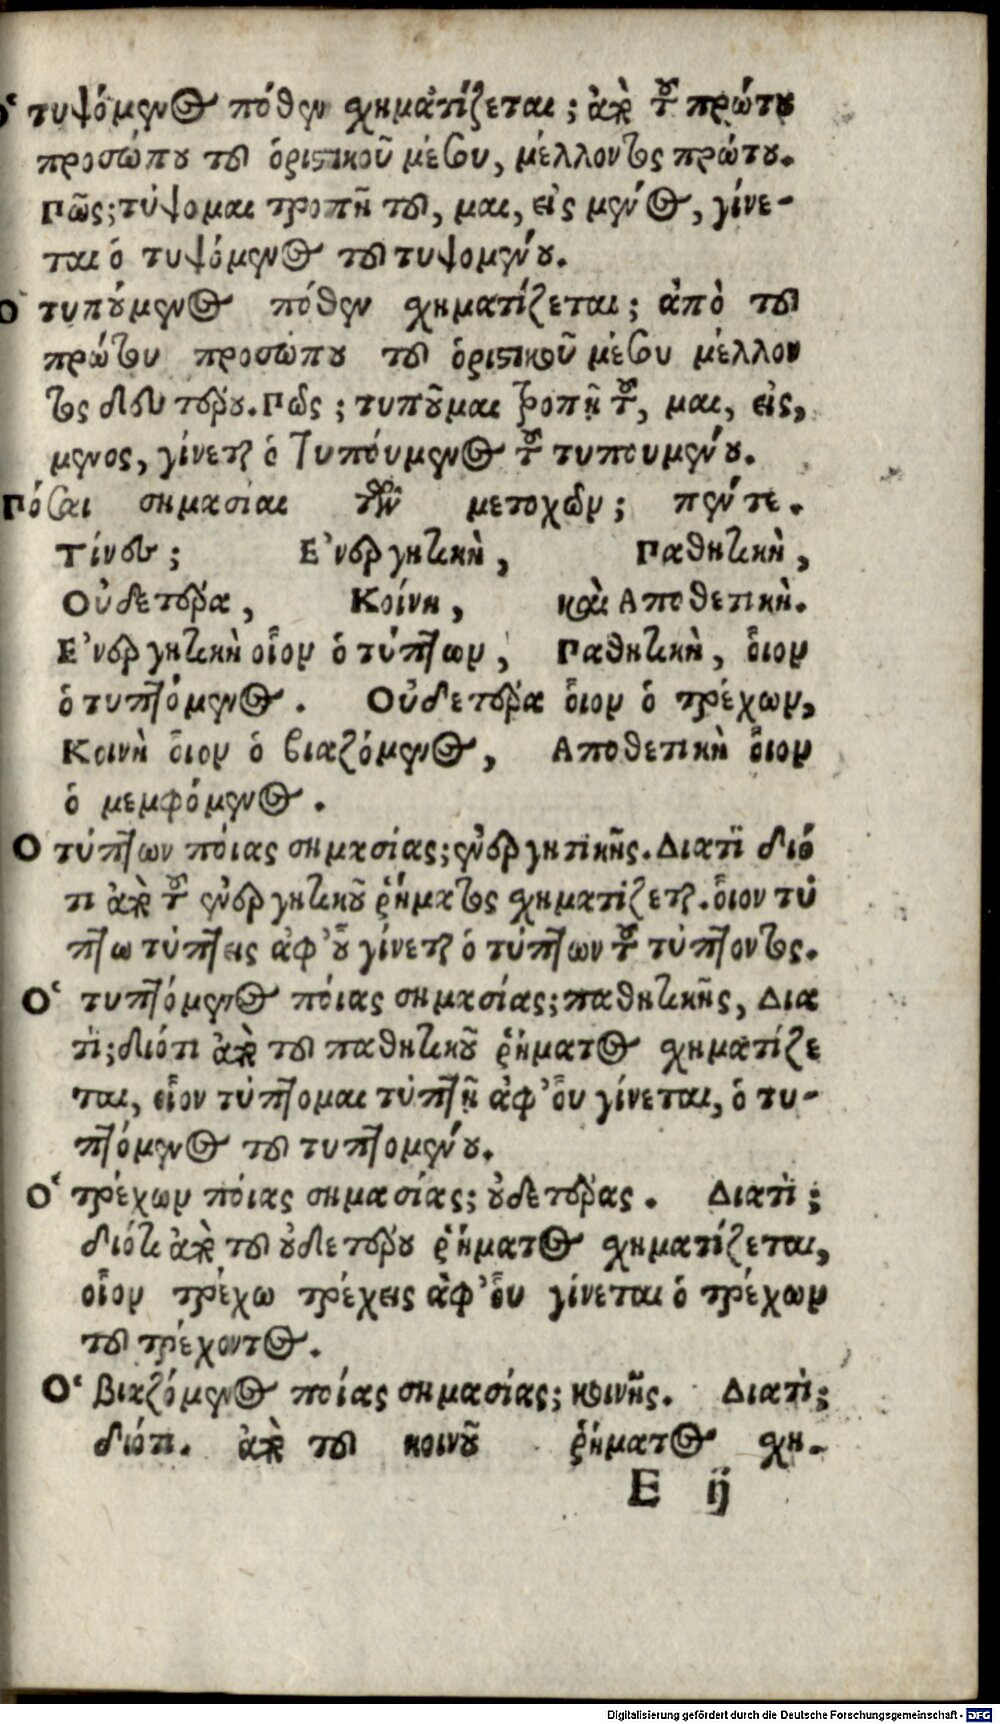 Ὁ τυψόμενος πόθεν σχηματίζεται; ἀπὸ τοῦ πρώτου
προσώπου τοῦ ὁριστικοῦ μέσου, μέλλοντος πρώτου.
Πῶς; τύψομαι τροπῇ τοῦ, μαι, εἰς μενος, γίνε-
ται ὁ τυψόμενος τοῦ τυψομένου.
Ὁ τυπούμενος πόθεν σχηματίζεται; ἀπὸ τοῦ
πρώτου προσώπου τοῦ ὁριστικοῦ μέσου μέλλον
τος δευτέρου. Πῶς; τυποῦμαι τροπῇ τοῦ, μαι, εἰς,
μενος, γίνεται ὁ τυπούμενος τοῦ τυπουμένου.
Πόσαι σημασίαι τῶν μετοχῶν; πέντε.
Τίνες; Ἐνεργητικὴ, Παθητικὴ,
Οὐδετέρα, Κοίνη, καὶ Αποθετικὴ.
Ἐνεργητικὴ οἷον ὁ τύπτων, Παθητικὴ, οἷον
ὁ τυπτόμενος. Οὐδετέρα οἷον ὁ τρέχων,
Κοινὴ οἷον ὁ βιαζόμενος, Αποθετικὴ οἷον
ὁ μεμφόμενος.
Ὁ τύπτων πόιας σημασίας; ἐνεργητικῆς. Διατί διό
τι ἀπὸ τοῦ ἐνεργητικοῦ ῥήματος σχηματίζεται. οἷον τύ
πτω τύπτεις ἀφ' οὗ γίνεται ὁ τύπτων τοῦ τύπτοντος.
Ὁ τυπτόμενος πόιας σημασίας; παθητικῆς, Δια
τί; διότι ἀπὸ τοῦ παθητικοῦ ῥήματος σχηματίζε
ται, οἷον τύπτομαι τύπτῃ ἀφ' οὗ γίνεται, ὁ τυ-
πτόμενος τοῦ τυπτομένου.
Ὁ τρέχων πόιας σημασίας; οὐδετέρας. Διατὶ;
διότι ἀπὸ τοῦ οὐδετέρου ῥήματος σχηματίζεται,
οἷον τρέχω τρέχεις ἀφ' οὗ γίνεται ὁ τρέχων
τοῦ τρέχοντος.
Ὁ βιαζόμενος ποίας σημασίας; κοινῆς. Διατὶ;
διότι. ἀπὸ τοῦ κοινοῦ ῥήματος σχη-
E ij
Digitalisierung gefördert durch die Deutsche Forschungsgemeinschaft - DFG